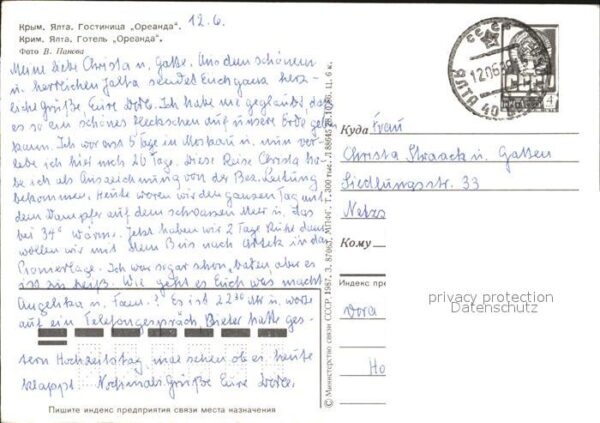 Крым. Ялта. Гостиница „Ореанда".
12.6.
Крим. Ялта. Готель „Ореанда".
Фото В. Панова
Meine liebe Christa u. Gatte. Aus dem schönen
u. herrlichen Jalta sendet Euch ganz herz-
liche Grüße Eure Dorle. Ich habe nie geglaubt, daß
es so ein schönes Fleckchen auf unsere Erde geben
kann. Ich war erst 5 Tage in Moskau u. nun ver-
lebe ich hier noch 20 Tage. Diese Reise Christa ha-
be ich als Auszeichnung von der Bez. Leitung
bekommen. Heute waren wir den ganzen Tag mit
dem Dampfer auf dem schwarzen Meer u. das
bei 34° Wärme. Jetzt haben wir 2 Tage Ruhe dann
wollen wir mit dem Bus nach Artek in das
Pionierlager. Ich war sogar schon baden, aber es
ist zu heiß. Wie geht es Euch was macht
Angelika u. Fam.? Es ist 22 30 Uhr u. warte
auf ein Telefongespräch. Dieter hatte ges-
tern Hochzeitstag, mal sehen ob es heute
klappt. Nochmals Grüße Eure Dorle.
Пишите индекс предприятия связи места назначения
© Министерство связи СССР, 1987, З. 87063. МПФГ. Т. 300 тыс. Ц. 6 к.
СССР
12 06 89
ЯЛТА 40
4
Куда
Frau
Christa Straack u. Gatten
Siedlungsstr. 33
Netzs
Кому
Индекс пре
Dora
Ho
privacy protection
Datenschutz